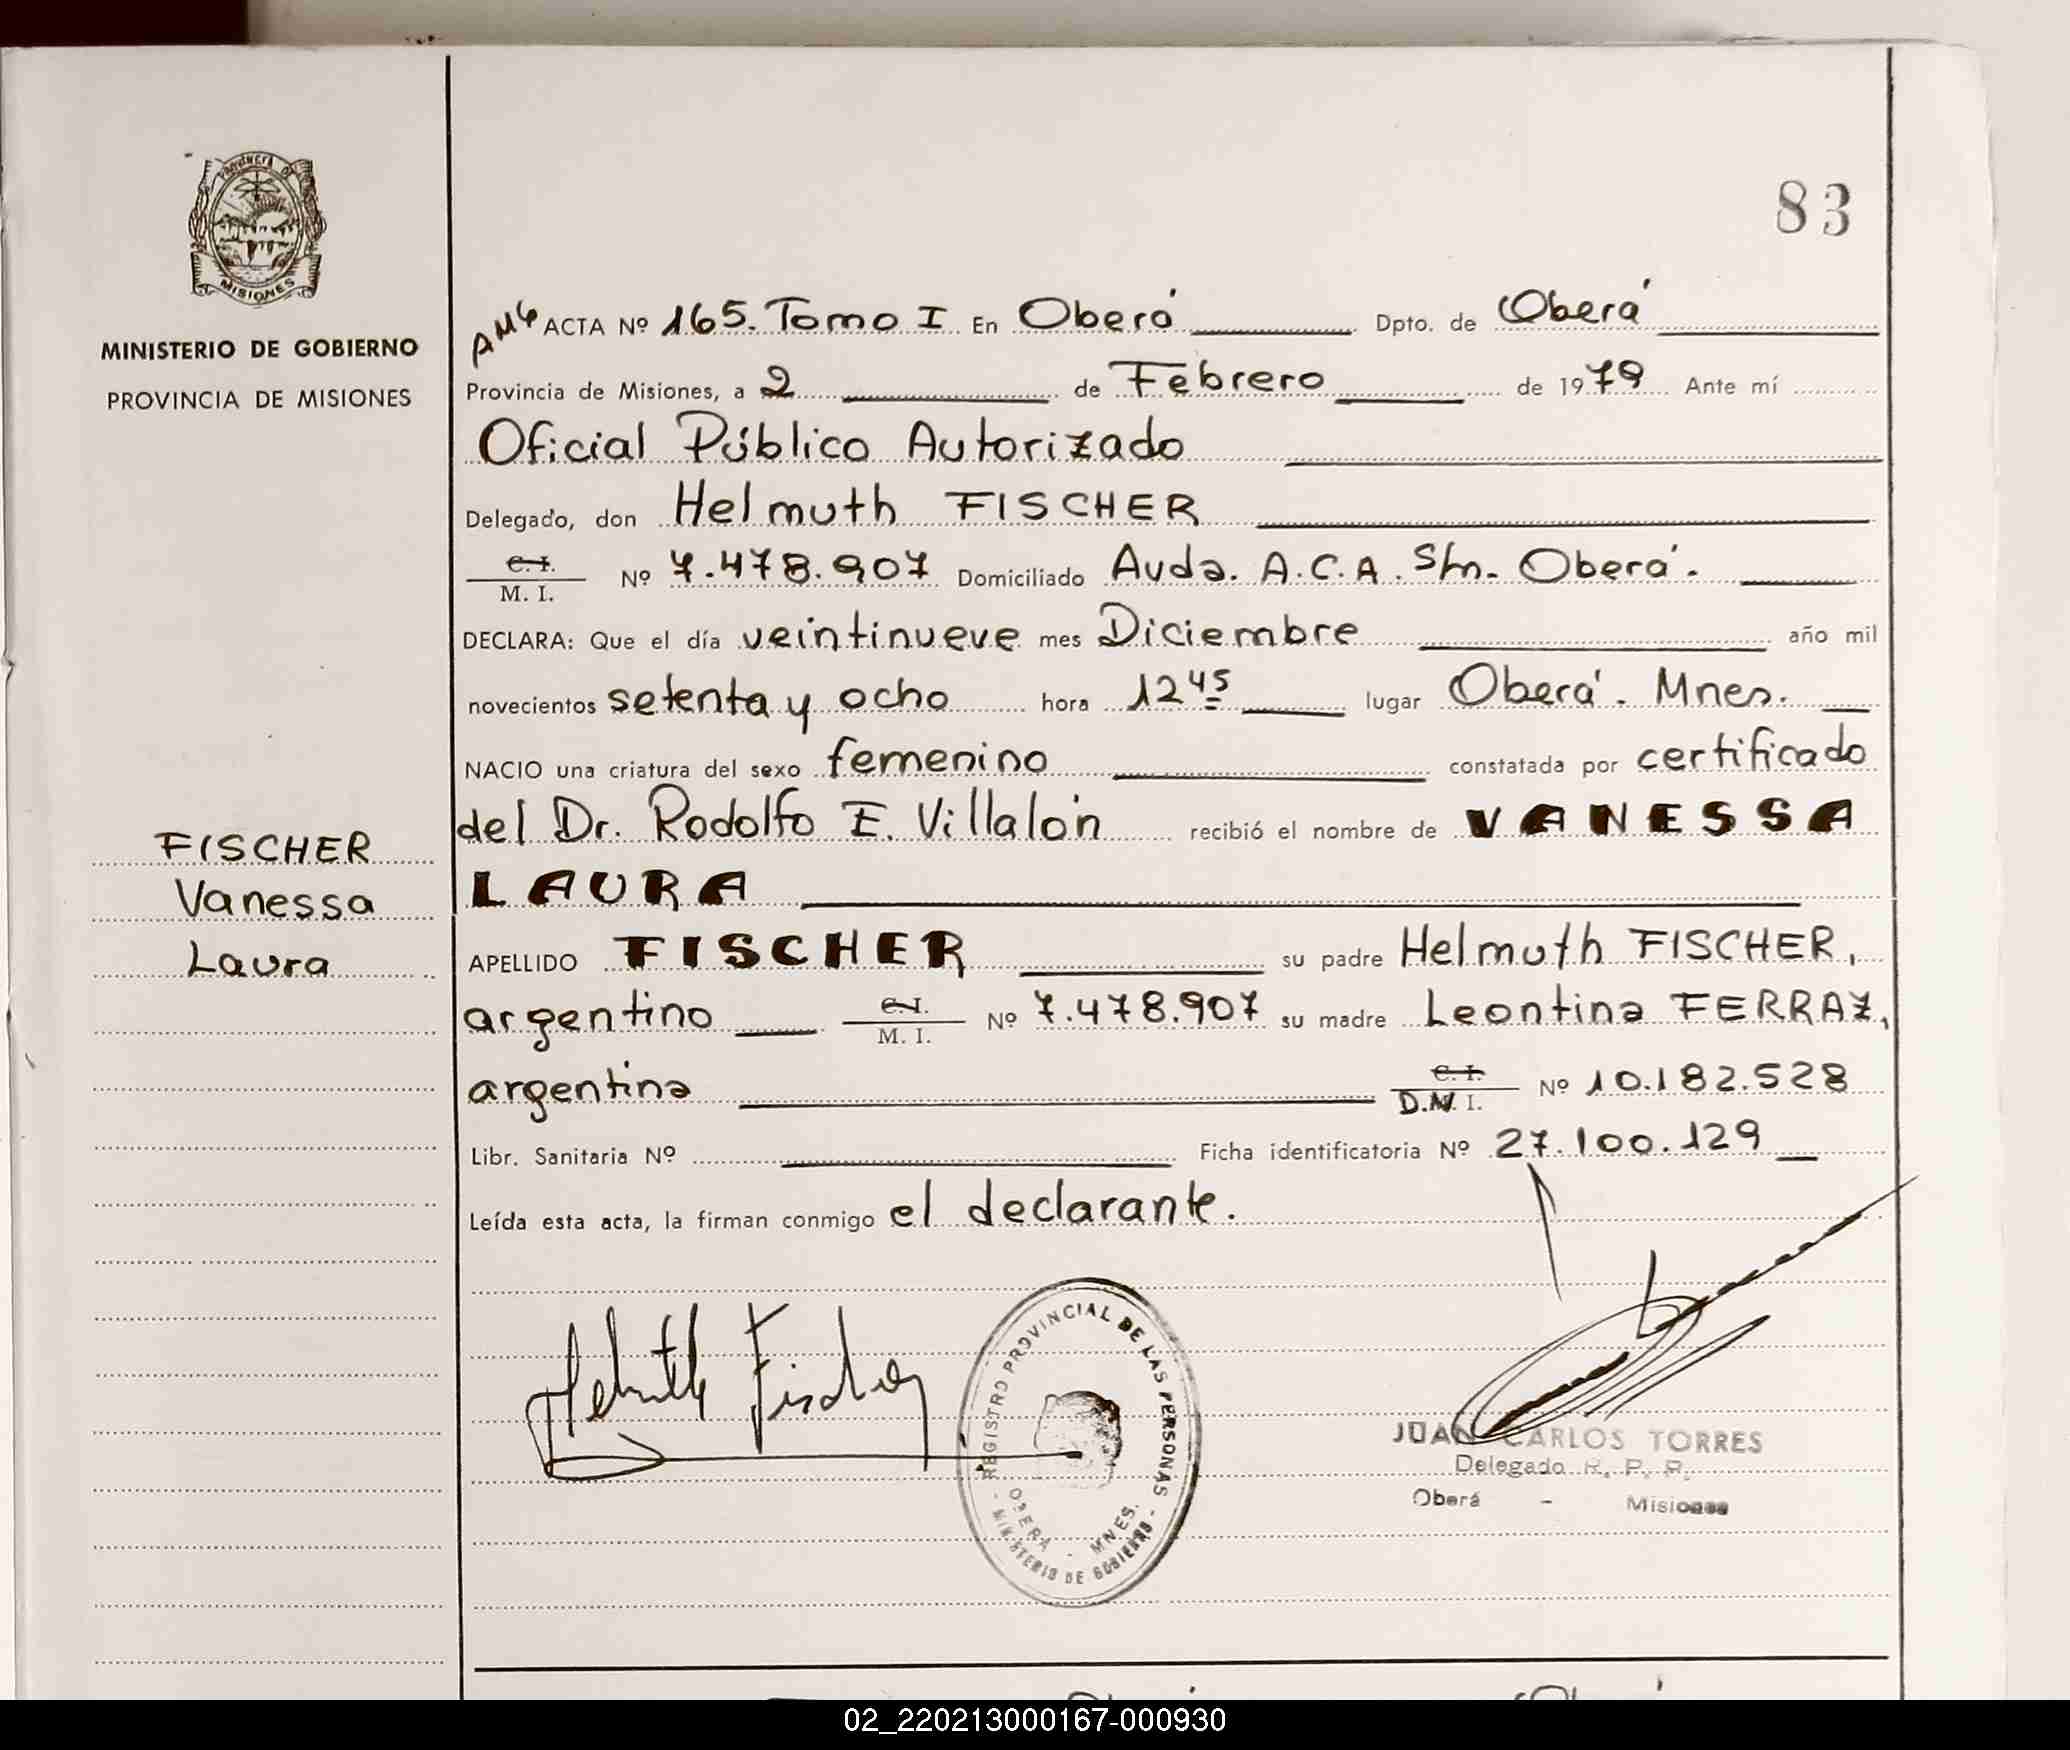 83
PROVINCIA DE
MISIONES
MINISTERIO DE GOBIERNO
PROVINCIA DE MISIONES
ACTA Nº 165. Tomo I En Oberá Dpto. de Oberá
Provincia de Misiones, a 2 de Febrero de 1979 Ante mí
Oficial Público Autorizado
Delegado, don Helmuth FISCHER
C. I.
M. I. Nº 7.478.907 Domiciliado Avda. A.C.A. S/n. Oberá.
DECLARA: Que el día veintinueve mes Diciembre año mil
novecientos setenta y ocho hora 12 45 lugar Oberá. Mnes.
NACIO una criatura del sexo femenino constatada por certificado
del Dr. Rodolfo E. Villalón recibió el nombre de VANESSA
LAURA
FISCHER
Vanessa
Laura
APELLIDO FISCHER su padre Helmuth FISCHER,
argentino C. I. M. I. Nº 7.478.907 su madre Leontina FERRAZ,
argentina C. I. D.N. I. Nº 10.182.528
Libr. Sanitaria Nº Ficha identificatoria Nº 27.100.129
Leída esta acta, la firman conmigo el declarante.
Helmuth Fischer
REGISTRO PROVINCIAL DE LAS PERSONAS
OBERA - MNES.
MINISTERIO DE GOBIERNO
JUAN CARLOS TORRES
Delegado R. P. P.
Oberá - Misiones
02_220213000167-000930